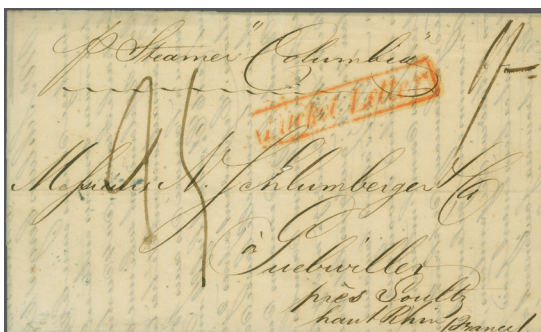 p Steamer "Columbia"
1/-
Packet Letter
Messieurs N. Schlumberger & Co
à Guebwiller
près Soultz
haut Rhin France